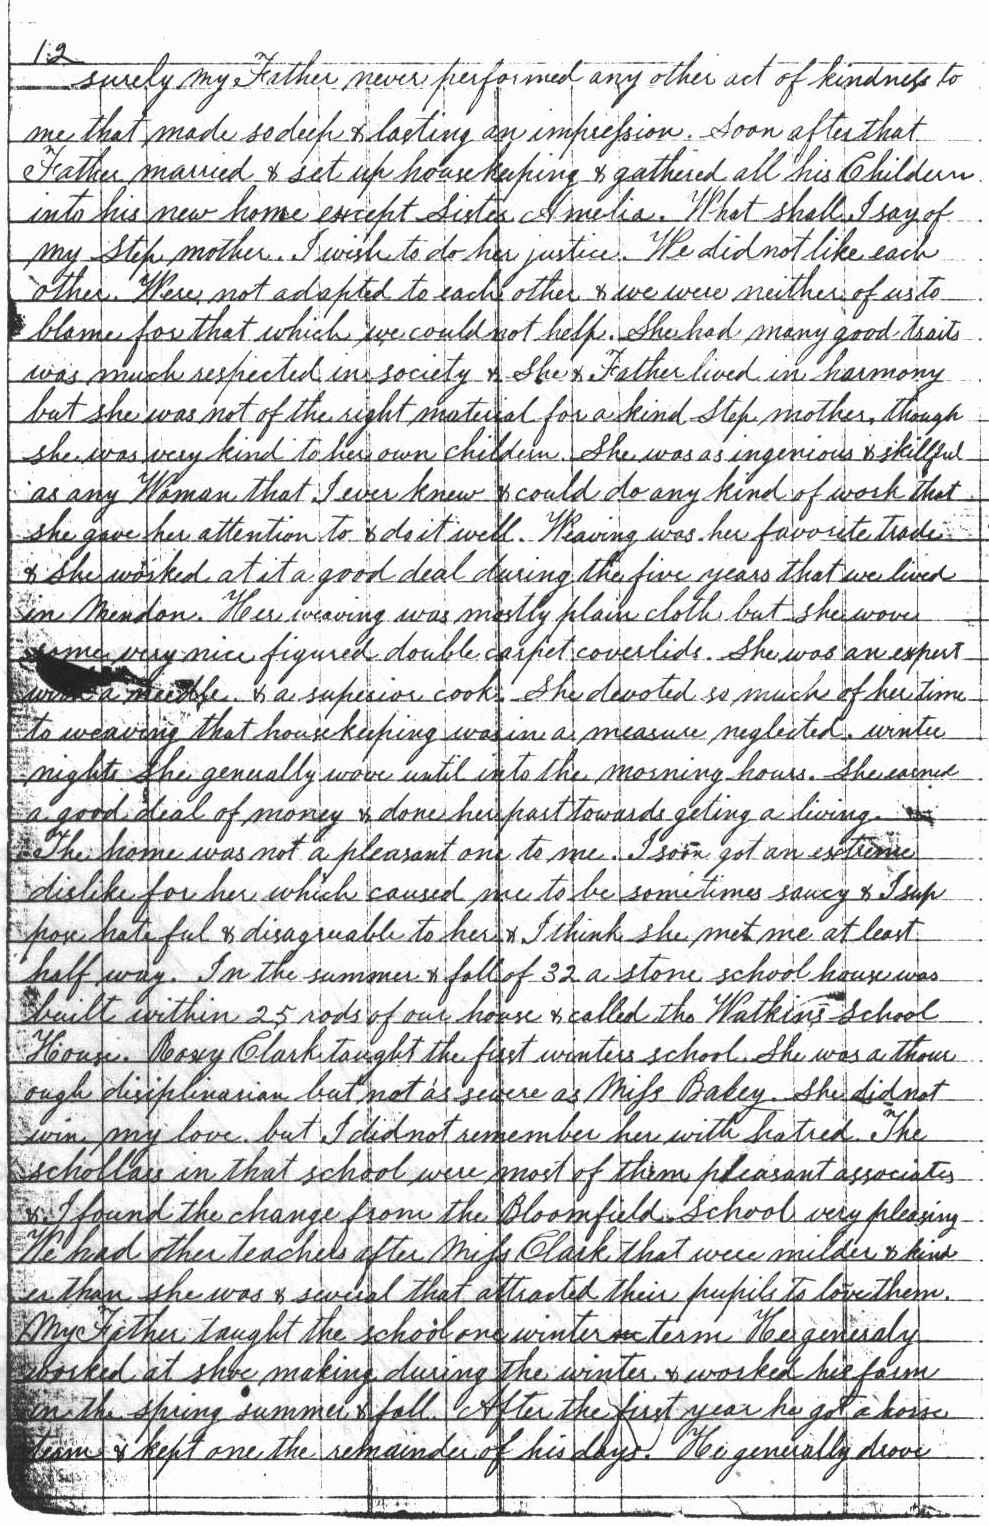 12
surely my Father never performed any other act of kindness to
me that made so deep & lasting an impression. Soon after that
Father married & set up housekeeping & gathered all his Childern
into his new home except Sister Amelia. What shall I say of
my Step mother. I wish to do her justice. We did not like each
other. Were not adapted to each other & we were neither of us to
blame for that which we could not help. She had many good traits
was much respected in society & She & Father lived in harmony
but she was not of the right material for a kind Step mother, though
she was very kind to her own childern. She was as ingenious & skillful
as any Woman that I ever knew & could do any kind of work that
she gave her attention to & do it well. Weaving was her favorite trade
& she worked at it a good deal during the five years that we lived
in Mendon. Her weaving was mostly plain cloth but she wove
some very nice figured double carpet coverlids. She was an expert
with a needle & a superior cook. She devoted so much of her time
to weaving that housekeeping was in a measure neglected. winter
nights She generally wove until into the morning hours. She earned
a good deal of money & done her part towards geting a living.
The home was not a pleasant one to me. I soon got an extreme
dislike for her which caused me to be sometimes saucy & I sup
pose hateful & disagruable to her & I think she met me at least
half way. In the summer & fall of 32 a stone school house was
built within 25 rods of our house & called the Watkins School
House. Roxy Clark taught the first winters school. She was a thour
ough disiplinarian but not as severe as Miss Baley. She did not
win my love but I did not remember her with hatred. The
schollars in that school were most of them pleasant associates
& I found the change from the Bloomfield School very pleasing
We had other teachers after Miss Clark that were milder & kind
er than she was & several that attracted their pupils to love them.
My Father taught the school one winter term He generaly
worked at shoe making during the winter & worked his farm
in the spring summer & fall. After the first year he got a horse
team & kept one the remainder of his days. He generally drove